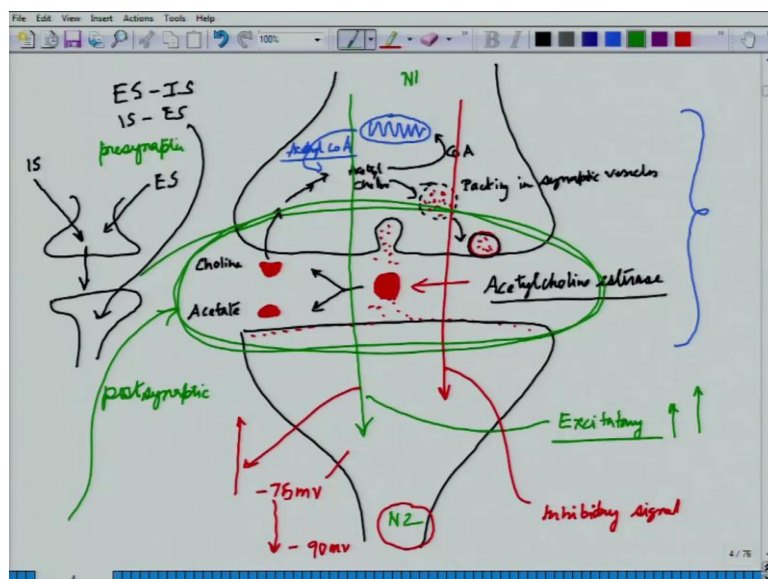 File Edit View Insert Actions Tools Help
100%
N1
ES-IS
IS-ES
presynaptic
IS
ES
Acetyl CoA
CoA
Acetyl
Packing in synaptic vesicles
Choline
Acetate
Acetylcholine
postsynaptic
Excitatory
-75mv
-90mv
N2
Inhibitory signal
4 / 76